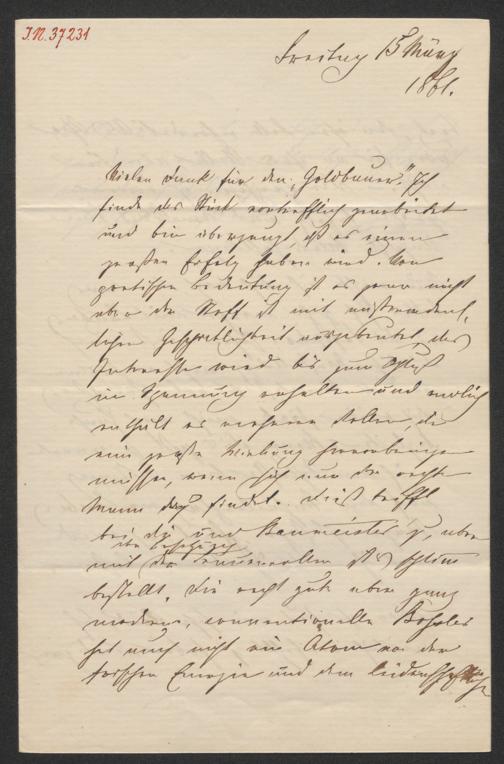 I.N. 37231
Freitag 15 März
1861.
Vielen Dank für den „Goldbauer“. Ich
finde das Stück vortrefflich gearbeitet
und bin überzeugt, daß es einen
großen Erfolg haben wird. Von
poetischer Bedeutung ist es zwar nicht
aber der Stoff ist mit
Geschicklichkeit ausgebeutet, das
Interesse wird bis zum Schluß
in Spannung erhalten und endlich
enthält es mehrere Rollen, die
eine große Wirkung hervorbringen
müssen, wenn sich nur der rechte
Mann dazu findet. Dieß trifft
bei dir und Baumeister zu, aber
mit der Frauenrolle ist es schlimm
bestellt. Die recht gute aber ganz
moderne, conventionelle Boßler
hat auch nicht ein Atom von der
Energie und dem